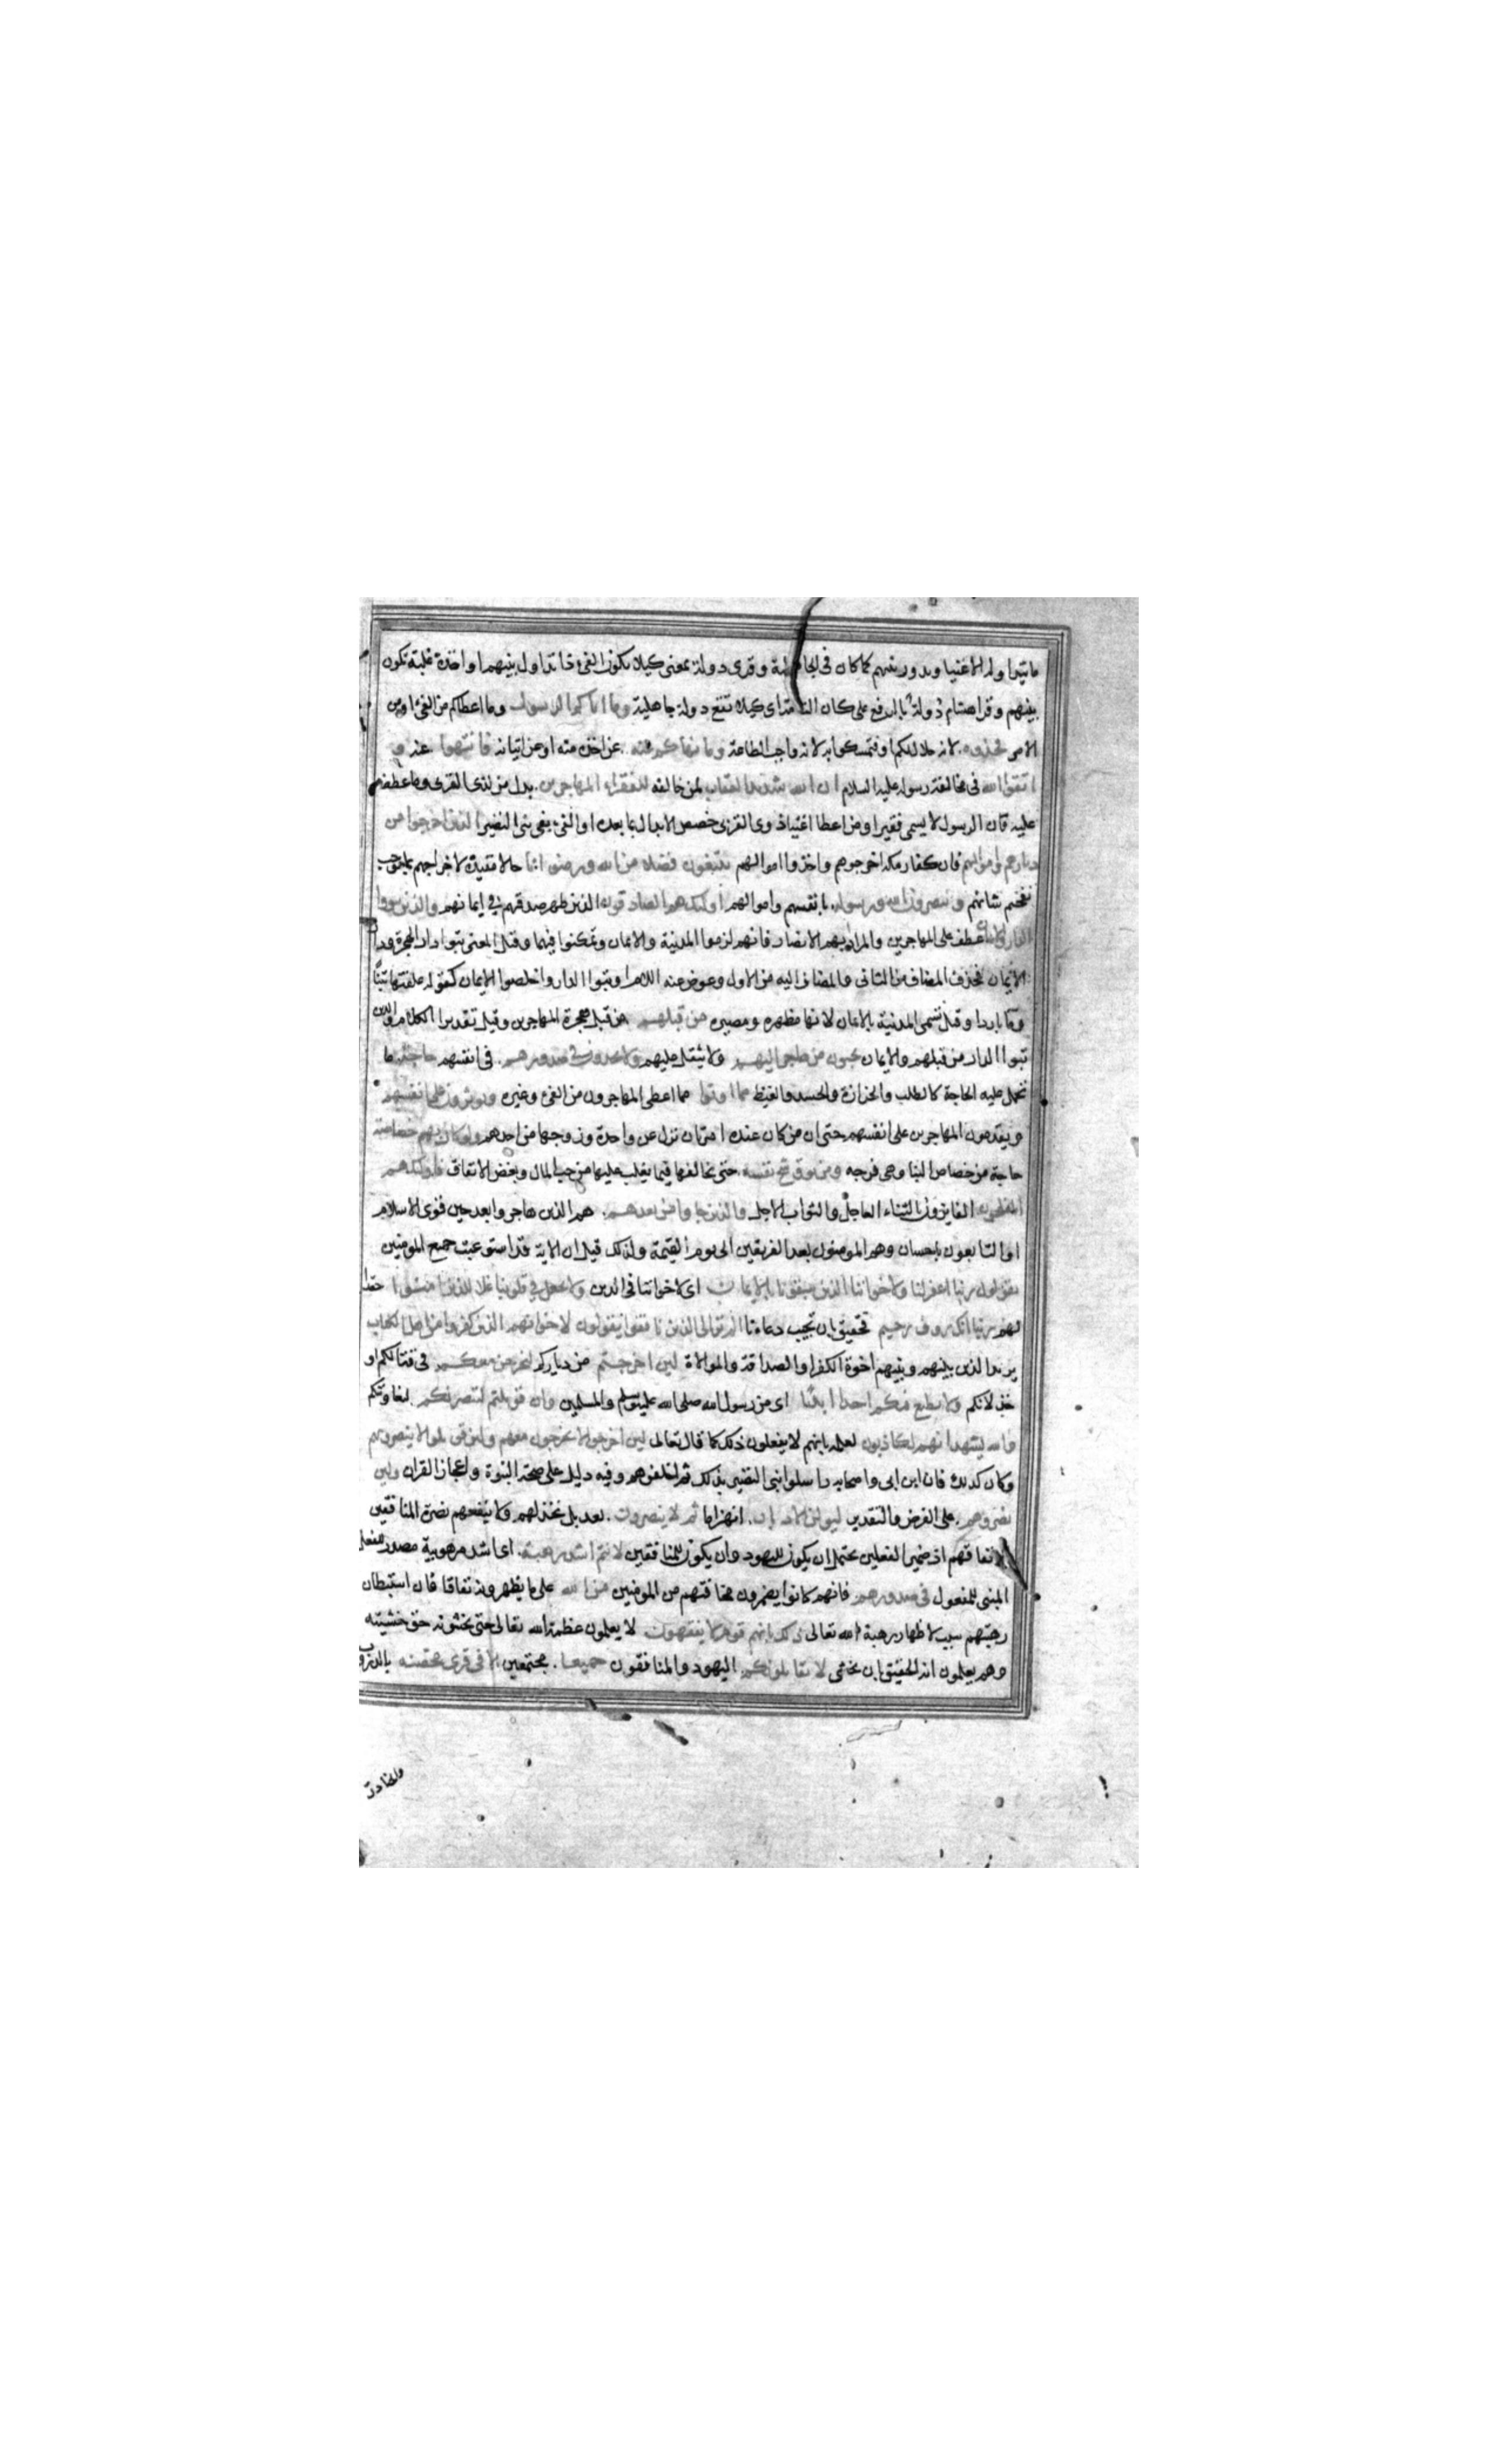 ما يتداوله الاغنيا ويدور بينهم كما كان في الجاهلية وقرى دولة بمعنى كيلا يكون الفئ ذا تداول بينهم او اخذة غلبة تكون
بينهم وقرا هشام دولة بالرفع على كان التامة اى كيلا تقع دولة جاهلية وما اتاكم الرسول وما اعطاكم من الفئ او من
الامر فخذوه لانه حلال لكم او فتمسكوا به لانه واجب الطاعة وما نهاكم عنه عن اخذه منه او عن اتيانه فانتهوا عنه و
اتقوا الله في مخالفة رسوله عليه السلام ان الله شديد العقاب لمن خالفه للفقراء المهاجرين بدل من لذى القربى وما عطف
عليه فان الرسول لا يسمى فقيرا ومن اعطا اغنيا ذوى القربى خصص الابدال بما بعده او الفئ بفئ بنى النضير الذين اخرجوا من
ديارهم واموالهم فان كفار مكة اخرجوهم واخذوا اموالهم يبتغون فضلا من الله ورضوانا حال مقيدة لاخراجهم بما يوجب
تفخيم شانهم وينصرون الله ورسوله بانفسهم واموالهم اولئك هم الصادقون الذين ظهر صدقهم في ايمانهم والذين تبووا
الدار والايمان عطف على المهاجرين والمراد بهم الانصار فانهم لزموا المدينة والايمان وتمكنوا فيهما وقيل المعنى تبوا دار الهجرة ودار
الايمان فحذف المضاف من الثانى والمضاف اليه من الاول وعوض عنه اللام او تبوا الدار واخلصوا الايمان كقوله علفتها تبنا
وماء باردا وقيل سمى المدينة بالايمان لانها مظهره ومصيره من قبلهم من قبل هجرة المهاجرين وقيل تقدير الكلام والذين
تبوا الدار من قبلهم والايمان يحبون من هاجر اليهم ولا يثقل عليهم ولا يجدون في صدورهم في انفسهم حاجة ما
تحمل عليه الحاجة كالطلب والحزازة والحسد والغيظ مما اوتوا مما اعطى المهاجرون من الفئ وغيره ويوثرون على انفسهم
ويقدمون المهاجرين على انفسهم حتى ان من كان عنده امرتان نزل عن واحدة وزوجها من احدهم ولو كان بهم خصاصة
حاجة من خصاص البنا وهى فرجه ومن يوق شح نفسه حتى يخالفها فيما يغلب عليها من حب المال وبغض الانفاق فاولئك هم
المفلحون الفايزون بالثناء العاجل والثواب الاجل والذين جاوا من بعدهم هم الذين هاجروا بعد حين قوى الاسلام
او التابعون باحسان وهم المومنون بعد الفريقين الى يوم القيمة ولذلك قيل ان الاية قد استوعبت جميع المومنين
يقولون ربنا اغفر لنا ولاخواننا الذين سبقونا بالايمان اى لاخواننا في الدين ولا تجعل في قلوبنا غلا للذين امنوا حقدا
لهم ربنا انك روف رحيم فحقيق بان تجيب دعاءنا الم تر الى الذين نافقوا يقولون لاخوانهم الذين كفروا من اهل الكتاب
يريد الذين بينهم وبينهم اخوة الكفر او الصداقة والموالاة لين اخرجتم من دياركم لنخرجن معكم في قتالكم او
خذلانكم ولا نطيع فيكم احدا ابدا اى من رسول الله صلى الله عليه وسلم والمسلمين وان قوتلتم لننصرنكم لنعاوننكم
والله يشهد انهم لكاذبون لعلمه بانهم لا يفعلون ذلك كما قال تعالى لين اخرجوا لا يخرجون معهم ولين قوتلوا لا ينصرونهم
وكان كذلك فان ابن ابى واصحابه راسلوا بنى النضير بذلك ثم اخلفوهم وفيه دليل على صحة النبوة واعجاز القران ولين
نصروهم على الفرض والتقدير ليولن الادبار انهزاما ثم لا ينصرون بعد بل نخذلهم ولا ينفعهم نصرة المنافقين
لانفاقهم اذ ضمير الفعلين يحتمل ان يكون لليهود وان يكون للمنافقين لانتم اشد رهبة اى اشد مرهوبية مصدر للفعل
المبنى للمفعول في صدورهم فانهم كانوا يضمرون مخافتهم من المومنين من الله على ما يظهرونه نفاقا فان استبطان
رهبتهم سبب لاظهار رهبة الله تعالى ذلك بانهم قوم لا يفقهون لا يعلمون عظمة الله تعالى حتى يخشونه حق خشيته
وهم يعلمون انه الحقيق بان يخشى لا يقاتلونكم اليهود والمنافقون جميعا مجتمعين الا في قرى محصنة بالدروب
والخنادق